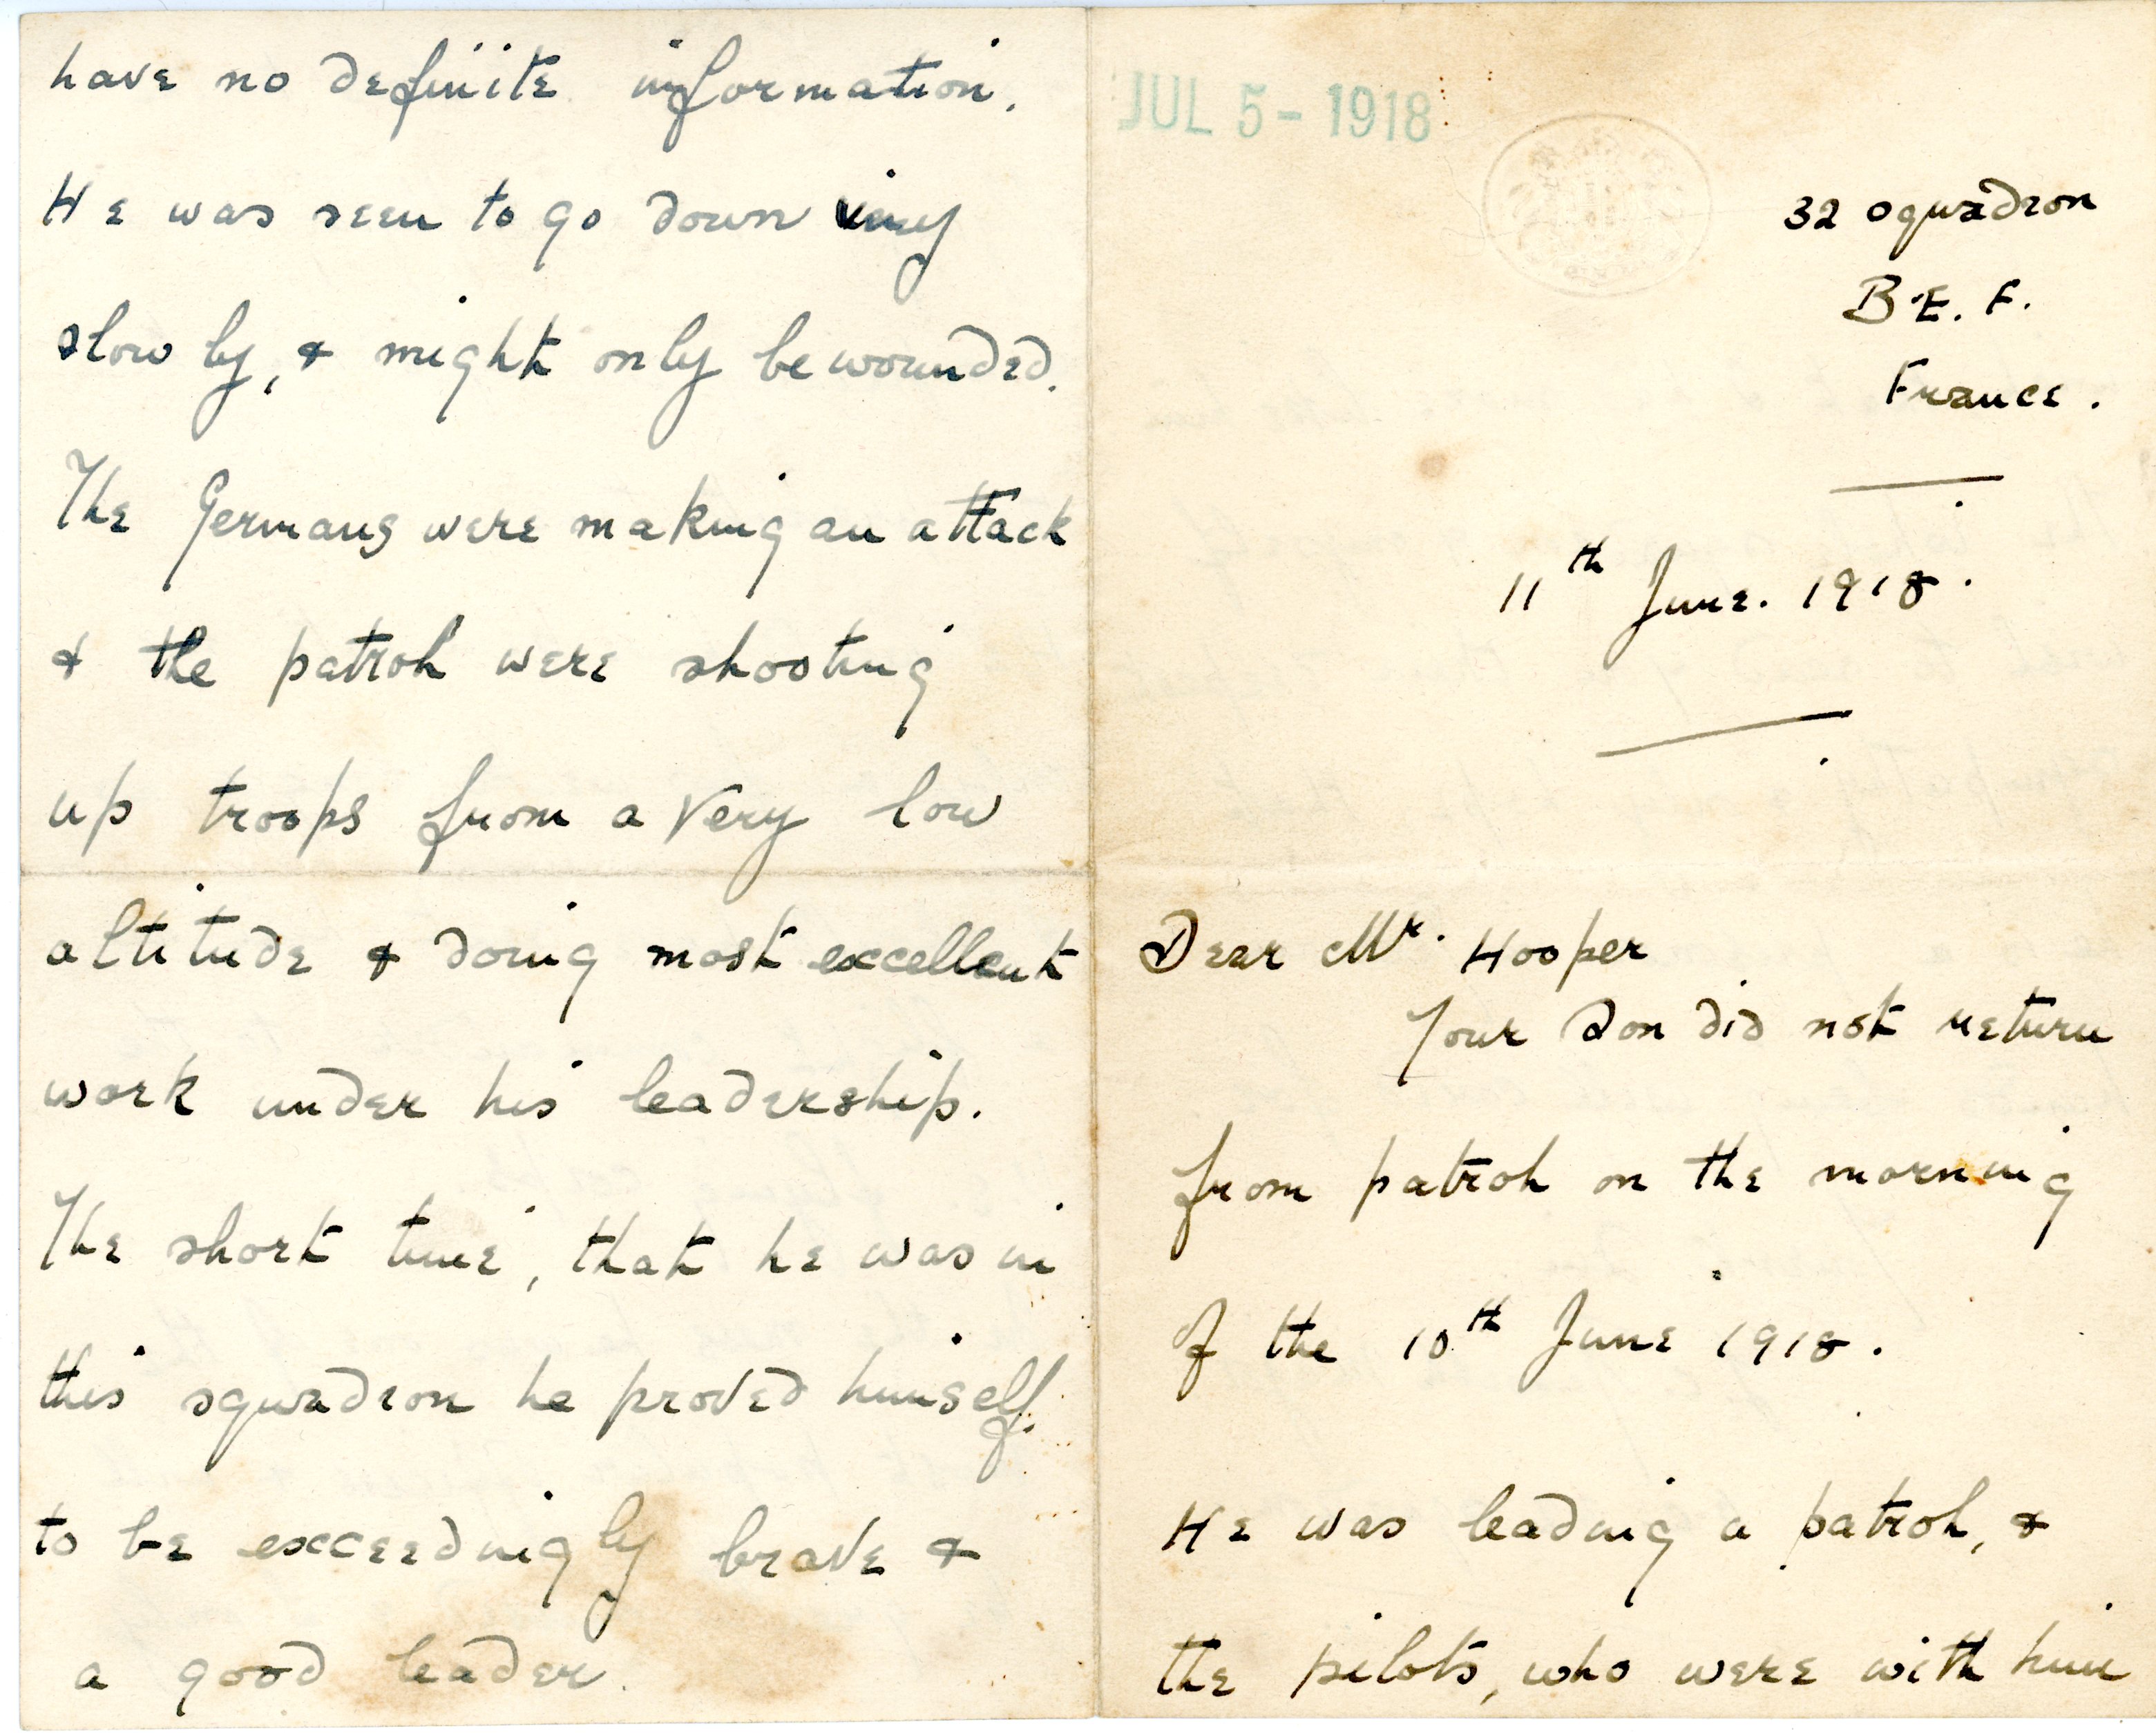 JUL 5 - 1918
32 Squadron
B.E.F.
France.
11th June. 1918.
Dear Mr. Hooper
Your Son did not return
from patrol on the morning
of the 10th June 1918.
He was leading a patrol, &
the pilots, who were with him
have no definite information.
He was seen to go down very
slowly, & might only be wounded.
The Germans were making an attack
& the patrol were shooting
up troops from a very low
altitude & doing most excellent
work under his leadership.
The short time, that he was in
this squadron he proved himself
to be exceedingly brave &
a good leader.